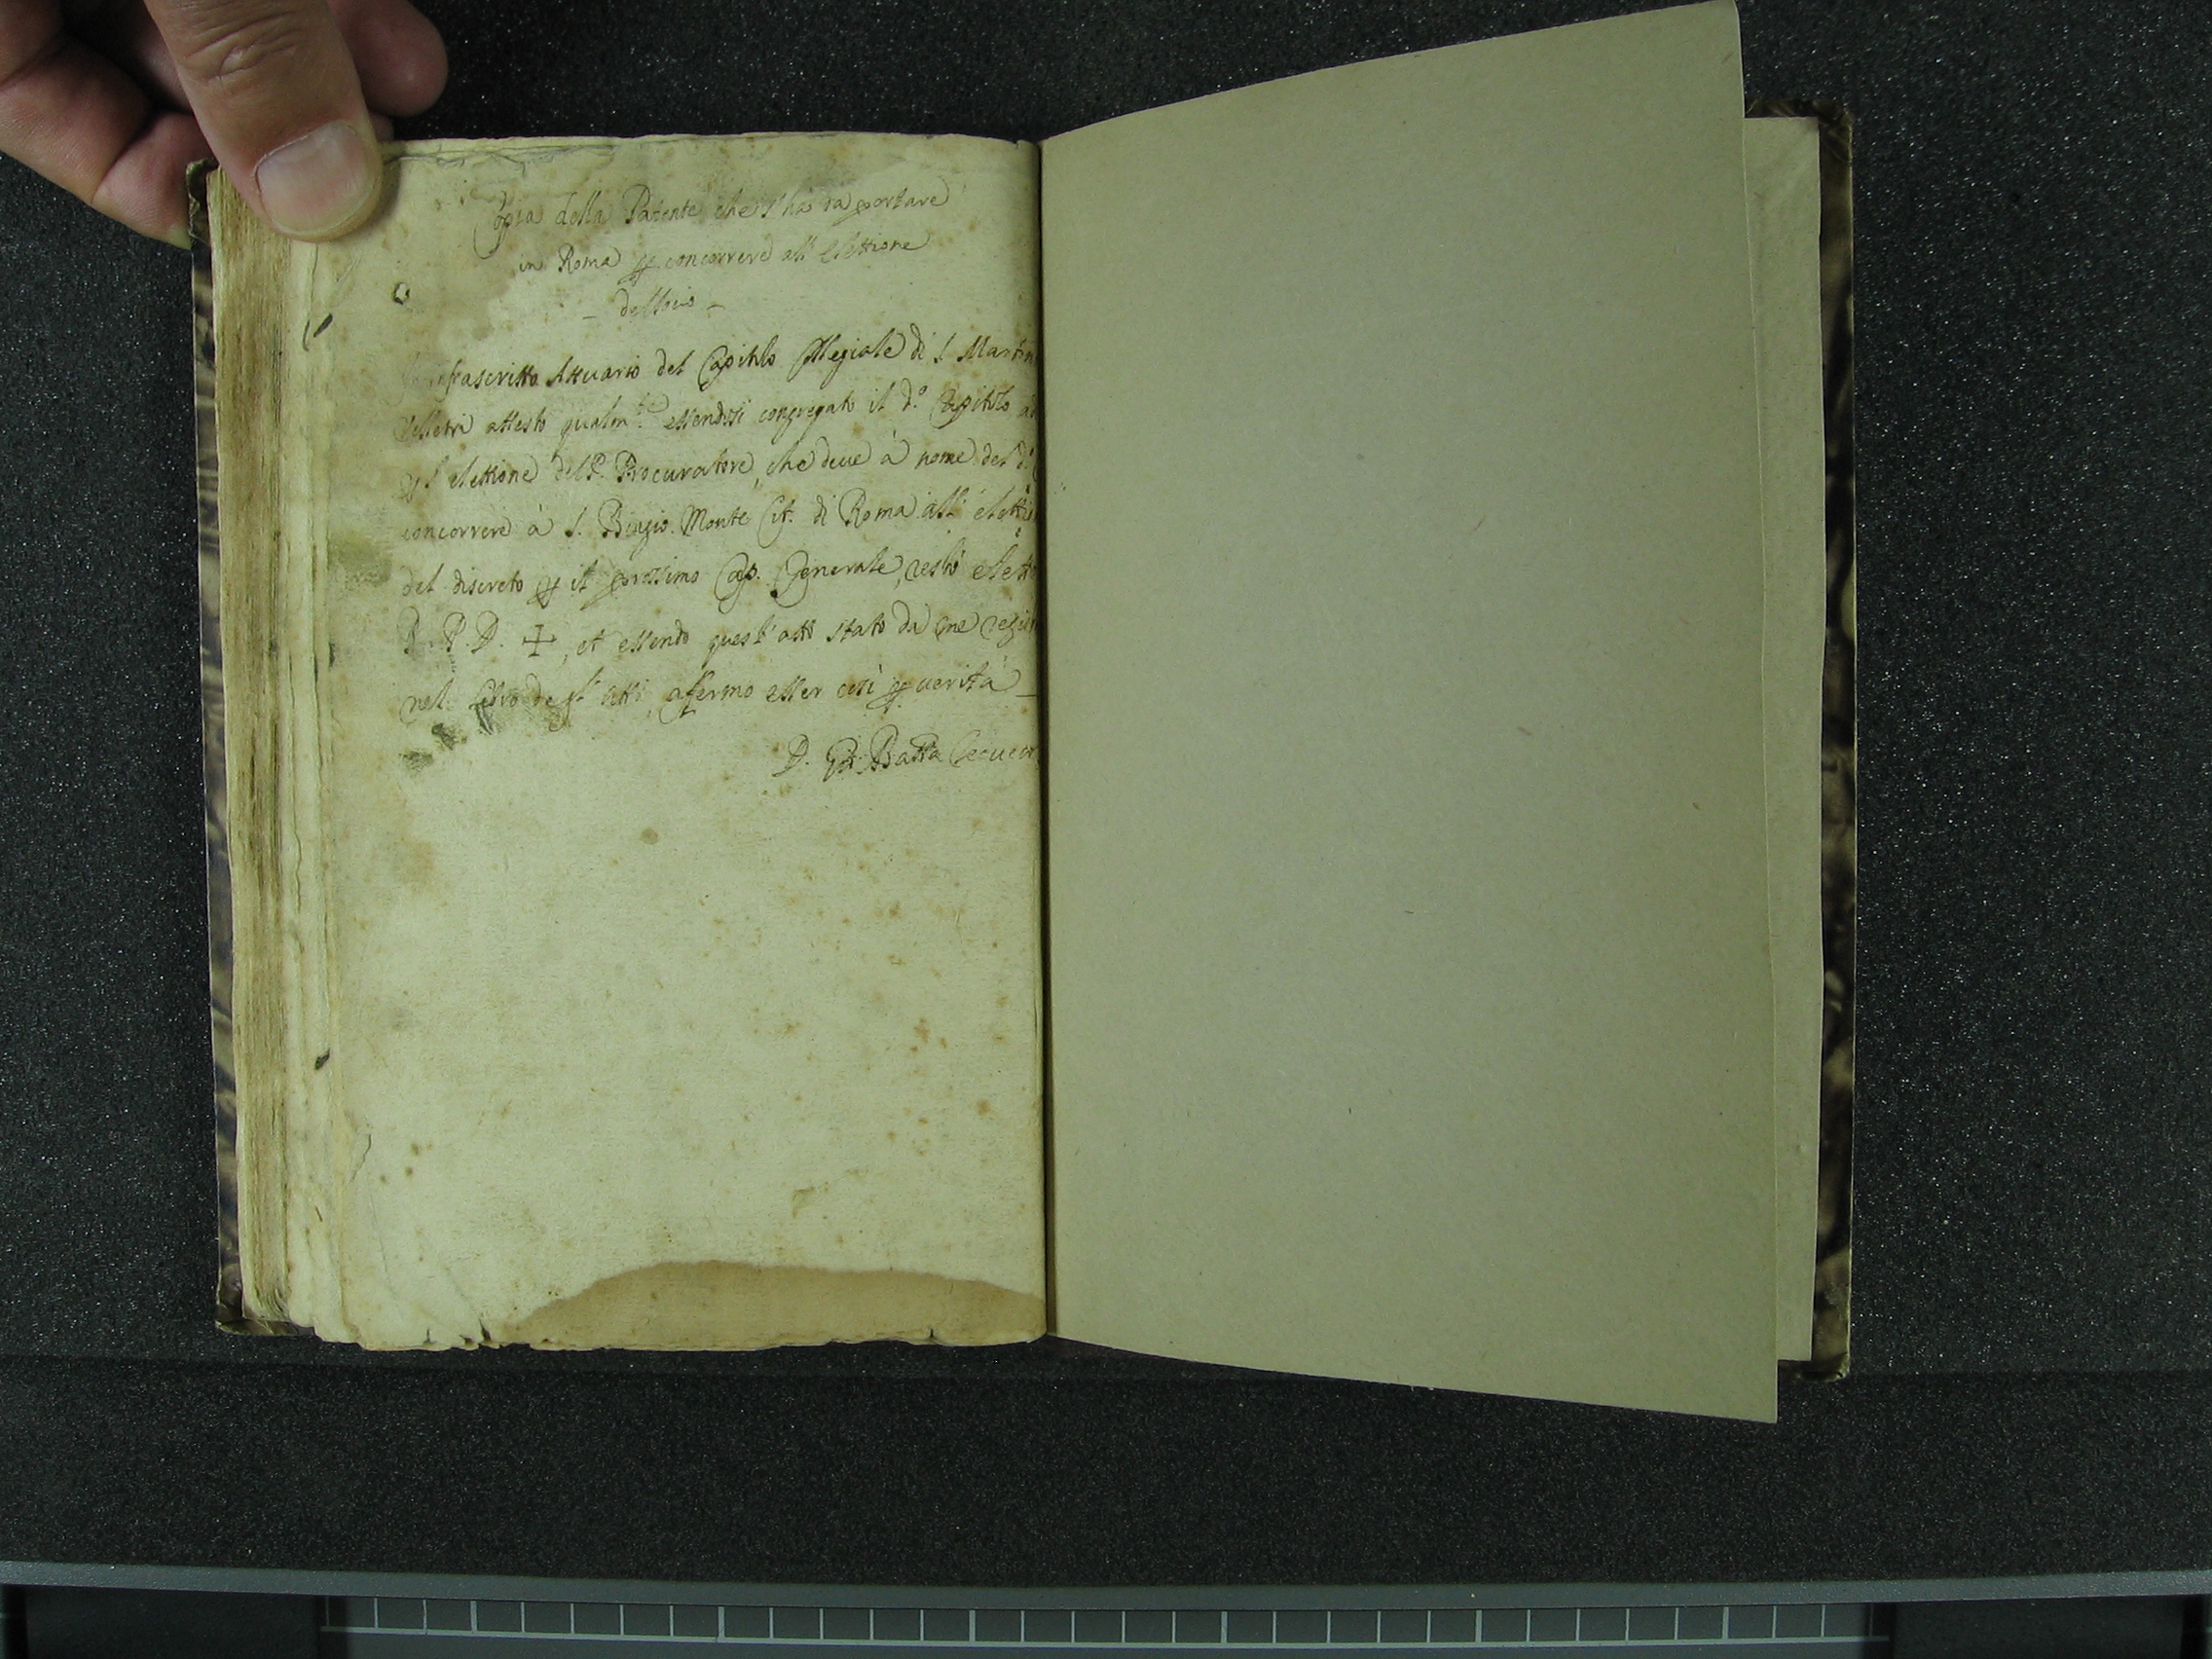 Copia della Patente che s'ha da portare
in Roma p concorrere all'elettione
- del Socio -
infrascritto Attuario del Capitolo Collegiale di S. Martin
Velletri attesto qualm.te essendosi congregato il d.o Capitolo ad
p l'elettione del P. Procuratore, che deue à nome del d.o
concorrere à S. Biagio Monte Cit. di Roma all'eletti
del discreto p il prossimo Cap. Generale, restò eletto
P. P. D. +, et essendo quest'atto stato da me regist
nel Libro degl'Atti, affermo esser così p uerità -
D. Gio: Batta